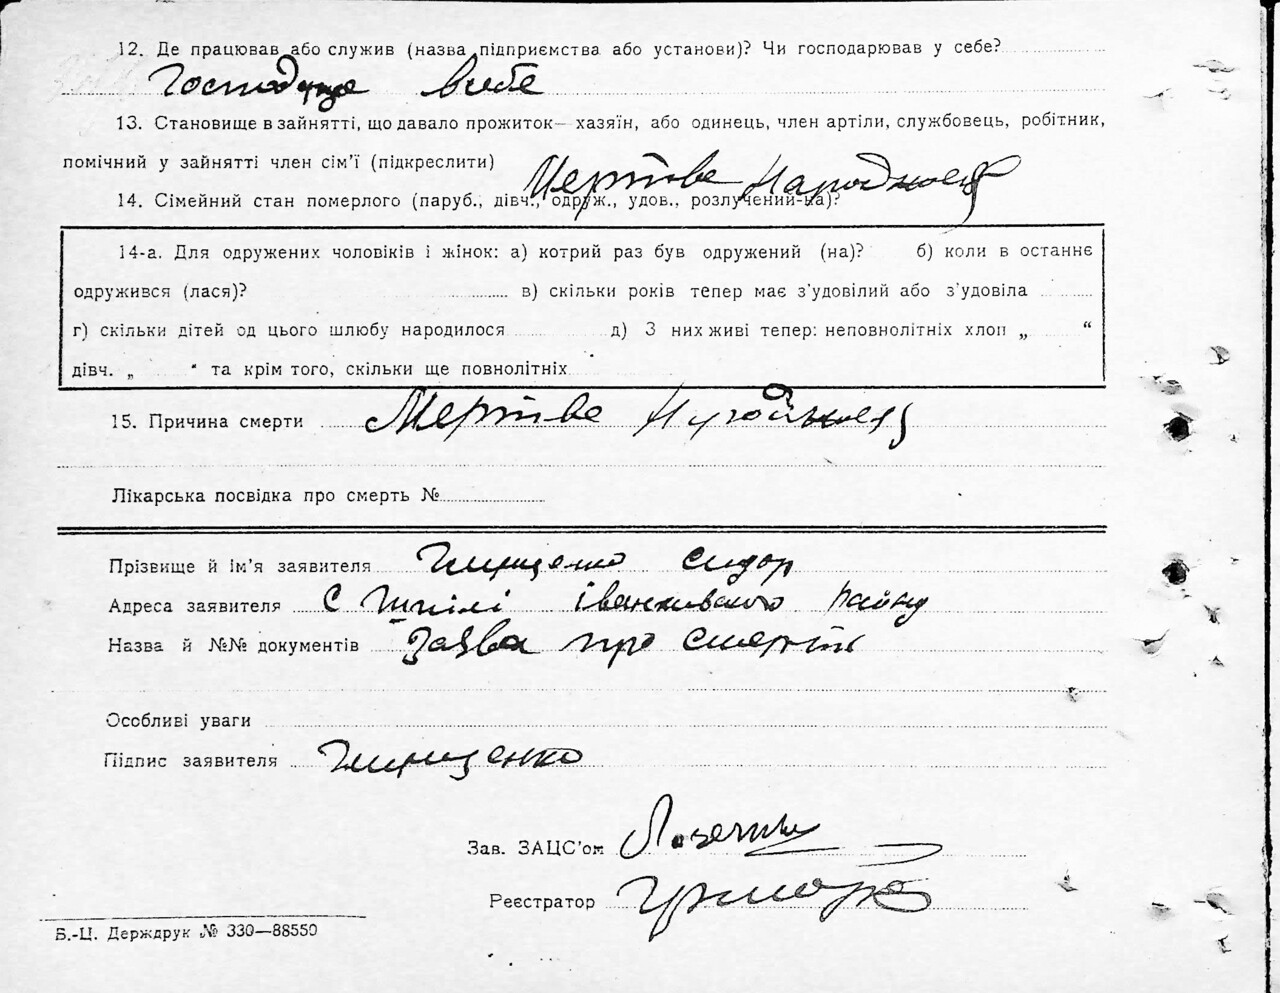 12. Де працював або служив (назва підприємства або установи)? Чи господарював у себе?
Господарює в себе
13. Становище в зайнятті, що давало прожиток— хазяїн, або одинець, член артіли, службовець, робітник,
помічний у зайнятті член сім'ї (підкреслити)
Мертве Народженя
14. Сімейний стан померлого (паруб., дівч., одруж., удов., розлучений-на)?
14-а. Для одружених чоловіків і жінок: а) котрий раз був одружений (на)? б) коли в останнє
одружився (лася)? в) скільки років тепер має з'удовілий або з'удовіла
г) скільки дітей од цього шлюбу народилося д) З них живі тепер: неповнолітніх хлоп „ “
дівч. „ “ та крім того, скільки ще повнолітніх
15. Причина смерти Мертве
Лікарська посвідка про смерть №
Прізвище й ім'я заявителя Тищенко Сидор
Адреса заявителя с Шпілі іванківського району
Назва й №№ документів Заява про смерть
Особливі уваги
Підпис заявителя Тищенко
Зав. ЗАЦС'ом
Реєстратор
Б.-Ц. Держдрук № 330—88550